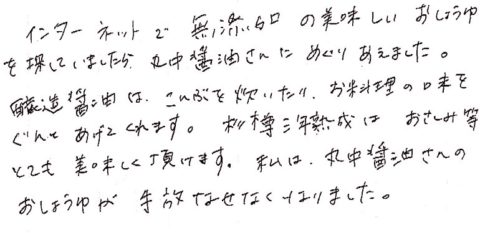 インターネットで 無添加の美味しいおしょうゆ
を探していましたら 丸中醤油さんに めぐりあえました。
醸造醤油は、こんぶを炊いたり、お料理の味を
ぐんと あげてくれます。 杉樽三年熟成は おさしみ等
とても 美味しく頂けます。 私は、丸中醤油さんの
おしょうゆが 手放なせなくなりました。